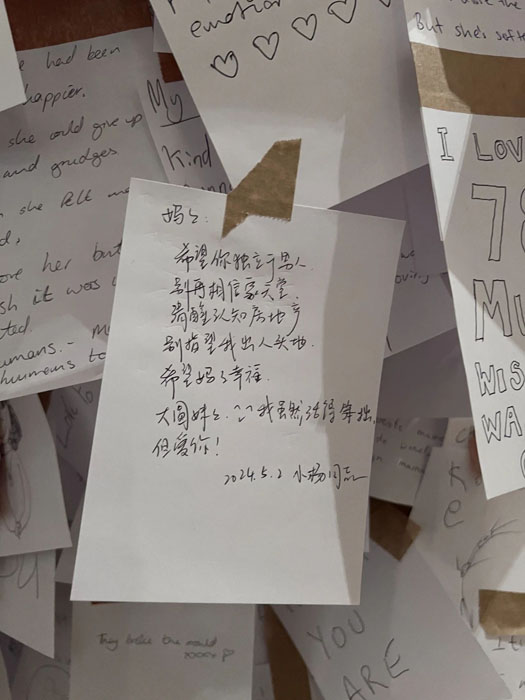 emotion
But she's softe
had been
happier.
she could give up
and grudges
she felt me
love her but
it was
humans.-
humans to
My
Kind
I LOV
78
MU
WIS
WA
妈々:
希望你独立于男人.
别再相信家天堂.
清醒认知房地产
别指望我出人头地.
希望妈々幸福.
大圆妹々, 我虽然活得笨拙,
但爱你!
2024.5.2 小杨同志
They broke the mould
xxxx
YOU
ARE